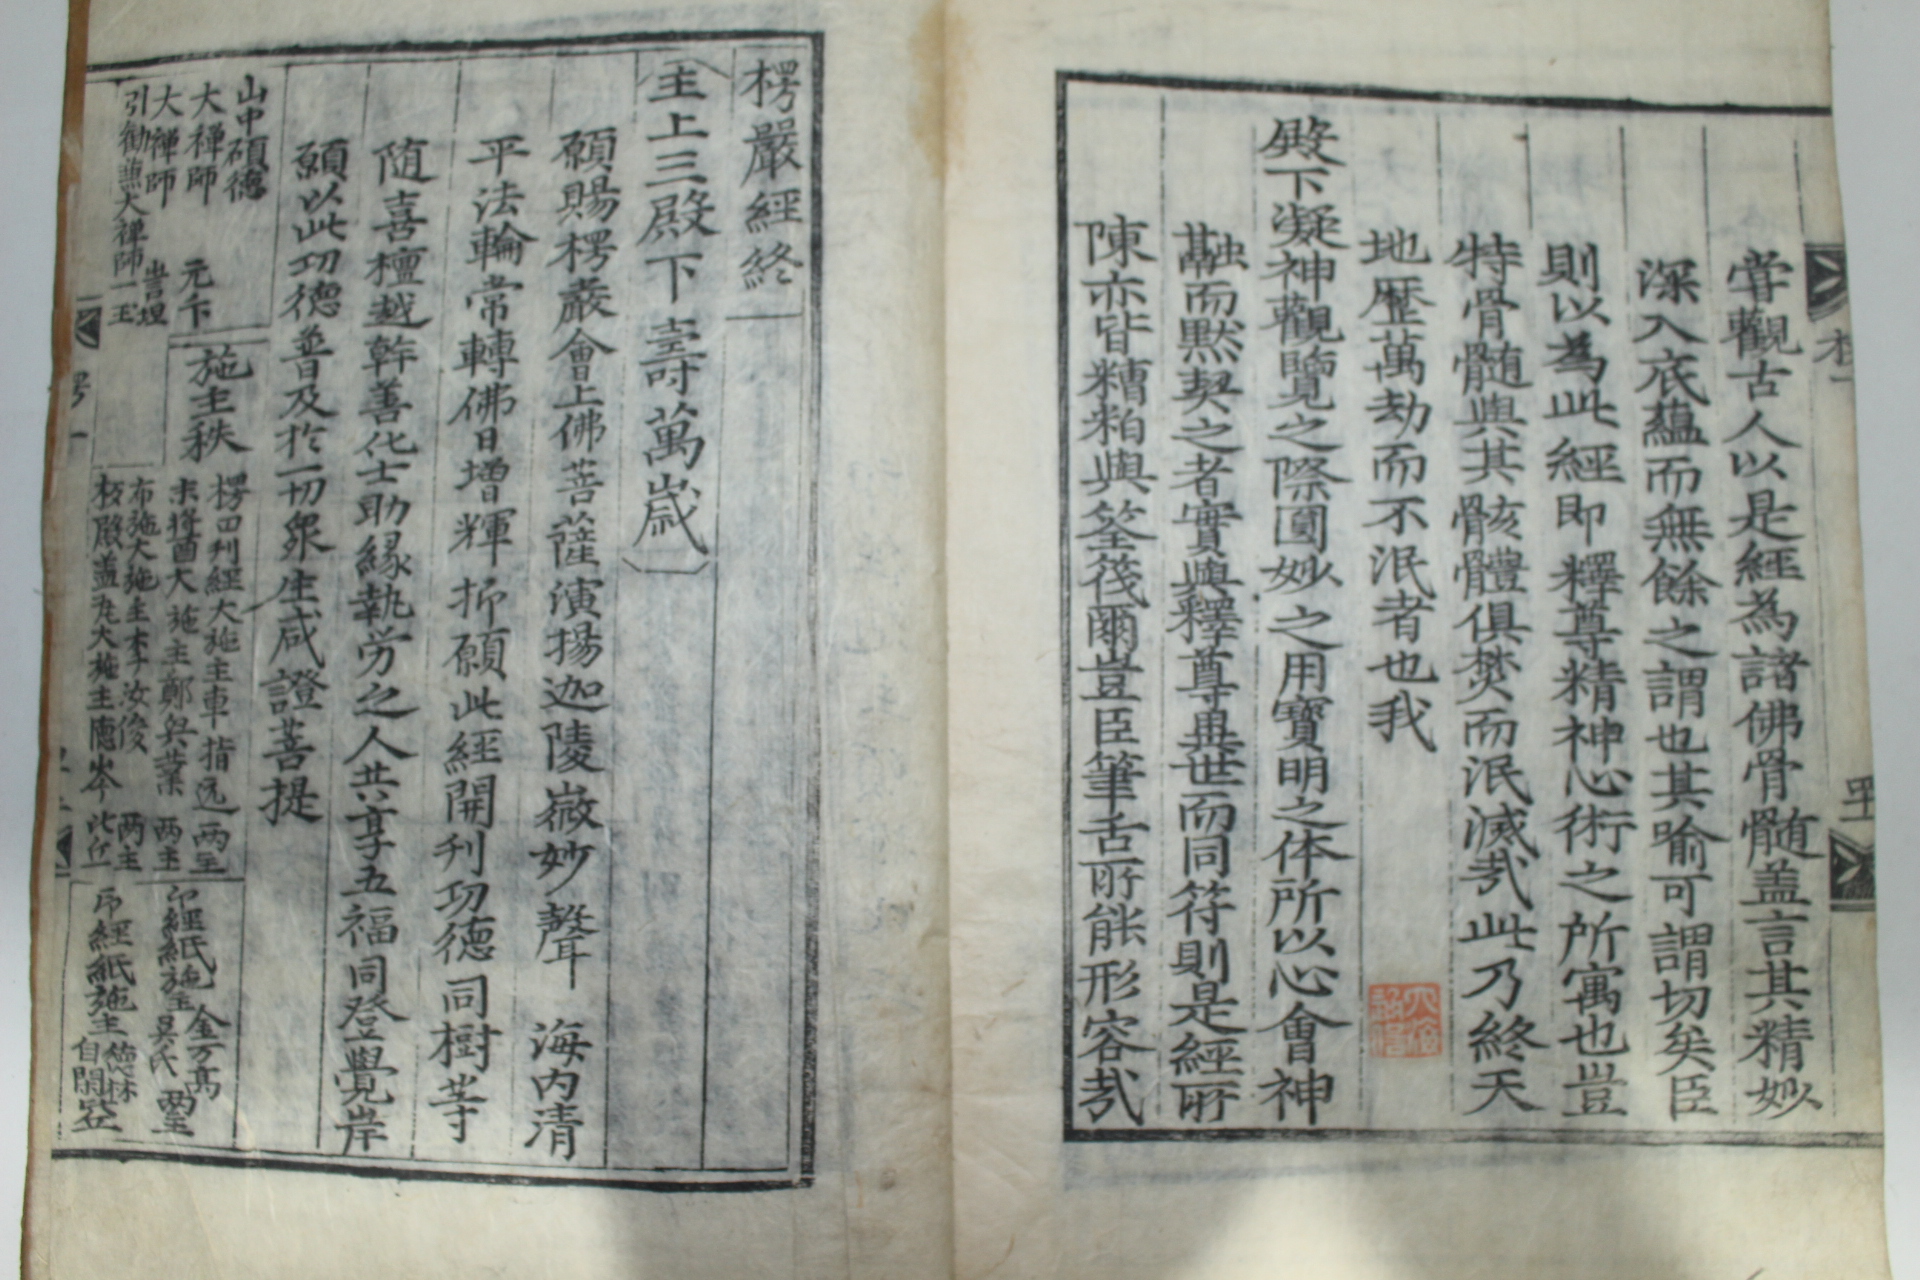 甞觀古人以是經為諸佛骨髓盖言其精妙
深入底蘊而無餘之謂也其喻可謂切矣臣
則以為此經即釋尊精神心術之所寓也豈
特骨髓與其骸體俱焚而泯滅㢤此乃終天
地歷萬劫而不泯者也我
殿下凝神觀覽之際圓妙之用寶明之体所以心會神
融而默契之者實與釋尊異世而同符則是經所
陳亦皆糟粕與筌筏爾豈臣筆舌所能形容㢤
楞嚴經終
主上三殿下壽萬歲
願賜楞嚴會上佛菩薩演揚迦陵微妙聲 海内清
平法輪常轉佛日增輝 抑願此經開刋功德同樹等
随喜檀越幹善化士助緣執劳之人共享五福同登覺岸
願以此功德普及扵一切衆生咸證菩提
山中碩德
大禪師 元卞
大禪師
引勧 大禪師一玉
施主秩
楞四刋經大施主車 指远两主
末醬酋大施主鄭 業 两主
布施大施主李汝俊 两主
大施主德岑 比丘
印經紙施主 金万髙 两主
吳氏
印經紙施主 德林
自閑